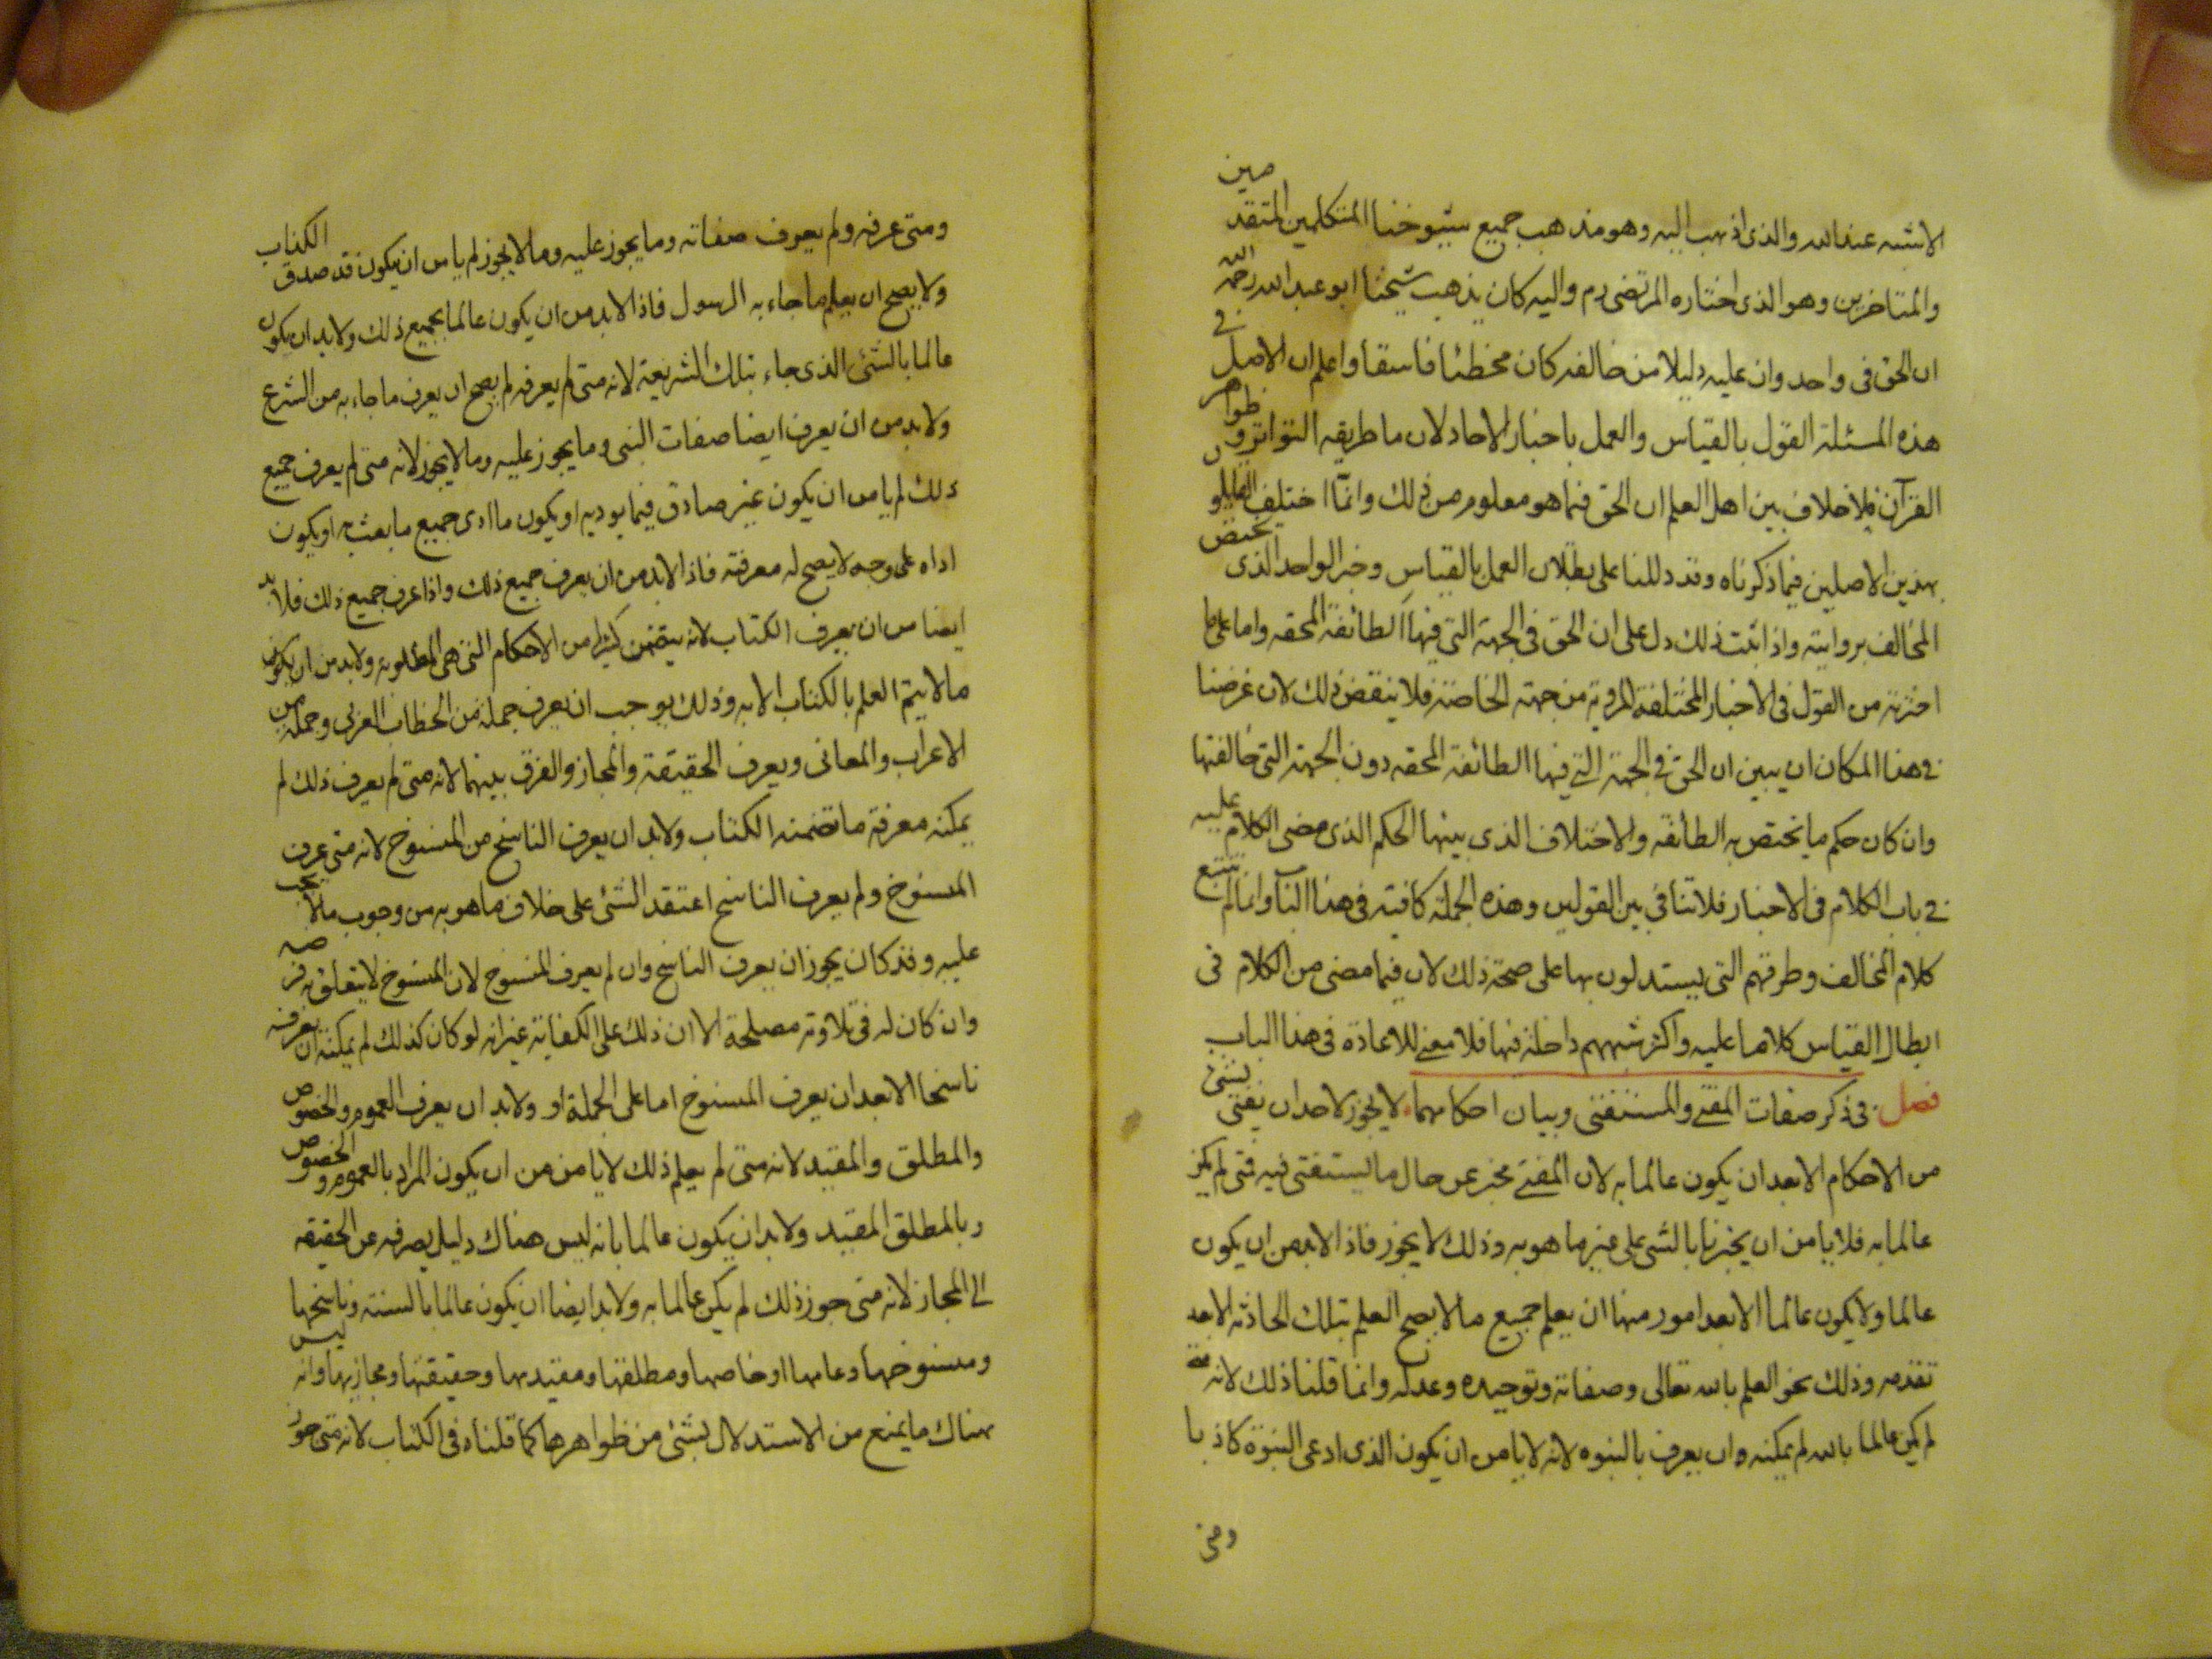 الاشبه عند الله والذى اذهب اليه وهو مذهب جميع شيوخنا المتكلمين المتقدمين
والمتاخرين وهو الذى اختاره المرتضى رم واليه كان يذهب شيخنا ابو عبد الله رحمه الله
ان الحق فى واحد وان عليه دليلا من خالفه كان مخطئا فاسقا واعلم ان الاصل فى
هذه المسئلة القول بالقياس والعمل باخبار الاحاد لان ما طريقه التواتر وظواهر
القرآن فلا خلاف بين اهل العلم ان الحق فيما هو معلوم من ذلك وانما اختلف القائلون
بهذين الاصلين فيما ذكرناه وقد دللنا على بطلان العمل بالقياس وخبر الواحد الذى يختص
المخالف بروايته واذا ثبت ذلك دل على ان الحق فى الجهة التى فيها الطائفة المحقه واما على ما
اخترته من القول فى الاخبار المختلفة المروية من جهة الخاصة فلا ينقض ذلك لان غرضنا
فى هذا المكان ان يبين ان الحق فى الجهة التى فيها الطائفة المحقه دون الجهة التى خالفتها
وان كان حكم ما يختص به الطائفه والاختلاف الذى بينها الحكم الذى مضى الكلام عليه
فى باب الكلام فى الاخبار فلا تنافى بين القولين وهذه الجملة كافية فى هذا الباب وانما لم نتتبع
كلام المخالف وطرقهم التى يستدلون بها على صحة ذلك لان فيما مضى من الكلام فى
ابطال القياس كلاما عليه واكثر شبههم داخلة فيها فلا معنى للاعادة فى هذا الباب
فصل فى ذكر صفات المفتى والمستفتى وبيان احكامهما لا يجوز لاحد ان يفتى بشئ
من الاحكام الا بعد ان يكون عالما به لان المفتى مخبر عن حال ما يستفتى فيه فمتى لم يكن
عالما به فلا يامن ان يخبرنا بالشئ على غير ما هو به وذلك لا يجوز فاذا لا بد من ان يكون
عالما ولا يكون عالما الا بعد امور منها ان يعلم جميع ما لا يصح العلم بتلك الحادثه الا بعد
تقدمه وذلك نحو العلم بالله تعالى وصفاته وتوحيده وعدله وانما قلنا ذلك لانه متى
لم يكن عالما بالله لم يمكنه ان يعرف بالنبوه لانه لا يامن ان يكون الذى ادعى النبوة كاذبا
ومتى
ومتى عرفه ولم يعرف صفاته وما يجوز عليه وما لا يجوز لم يامن ان يكون قد صدق الكذاب
ولا يصح ان يعلم ما جاء به الرسول فاذا لا بد من ان يكون عالما بجميع ذلك ولا بد ان يكون
عالما بالشئ الذى جاء بتلك الشريعة لانه متى لم يعرفه لم يصح ان يعرف ما جاء به من الشرع
ولا بد من ان يعرف ايضا صفات النبى وما يجوز عليه وما لا يجوز لانه متى لم يعرف جميع
ذلك لم يامن ان يكون غير صادق فيما يوديه او يكون ما ادى جميع ما بعث به او يكون
اداه على وجه لا يصح له معرفته فاذا لا بد من ان يعرف جميع ذلك واذا عرف جميع ذلك فلا بد
ايضا من ان يعرف الكتاب لانه يتضمن كثيرا من الاحكام التى هى المطلوبة ولا بد من ان يكون
ما لا يتم العلم بالكتاب الا به وذلك يوجب ان يعرف جملة من الخطاب العربى وجملة من
الاعراب والمعانى ويعرف الحقيقة والمجاز والفرق بينهما لانه متى لم يعرف ذلك لم
يمكنه معرفة ما تضمنه الكتاب ولا بد ان يعرف الناسخ من المنسوخ لانه متى عرف
المنسوخ ولم يعرف الناسخ اعتقد الشئ على خلاف ما هو به من وجوب ما لا يجب
عليه وقد كان يجوز ان يعرف الناسخ وان لم يعرف المنسوخ لان المنسوخ لا يتعلق به فرضه
وان كان له فى تلاوته مصلحة الا ان ذلك على الكفاية غير انه لو كان كذلك لم يمكنه ان يعرفه
ناسخا الا بعد ان يعرف المنسوخ اما على الجملة او ولا بد ان يعرف العموم والخصوص
والمطلق والمقيد لانه متى لم يعلم ذلك لا يامن من ان يكون المراد بالعموم والخصوص
وبالمطلق المقيد ولا بد ان يكون عالما بانه ليس هناك دليل يصرفه عن الحقيقه
الى المجاز لانه متى جوز ذلك لم يكن عالما به ولا بد ايضا ان يكون عالما بالسنة وناسخها
ومنسوخها وعامها او خاصها ومطلقها ومقيدها وحقيقتها ومجازيها وانه ليس
هناك ما يمنع من الاستدلال بشئ من ظواهرها كما قلناه فى الكتاب لانه متى جوز